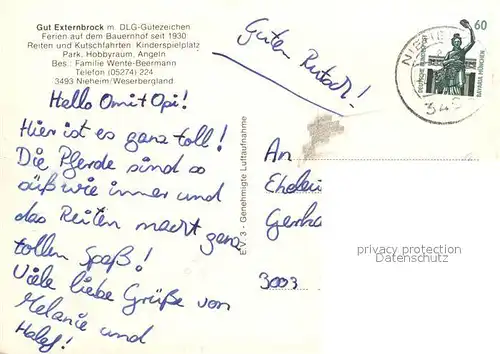 Gut Externbrock m. DLG-Gütezeichen
Ferien auf dem Bauernhof seit 1930
Reiten und Kutschfahrten, Kinderspielplatz
Park, Hobbyraum, Angeln
Bes.: Familie Wente-Beermann
Telefon (05274) 224
3493 Nieheim/Weserbergland
Guten Rutsch!
60
DEUTSCHE BUNDESPOST
BAVARIA MÜNCHEN
NIEHEIM
349
Hallo Omi + Opi!
Hier ist es ganz toll!
Die Pferde sind so
süß wie immer und
das Reiten macht ganz
tollen Spaß!
Viele liebe Grüße von
Melanie und
EV 3 - Genehmigte Luftaufnahme
An
Gerha
3003
privacy protection
Datenschutz